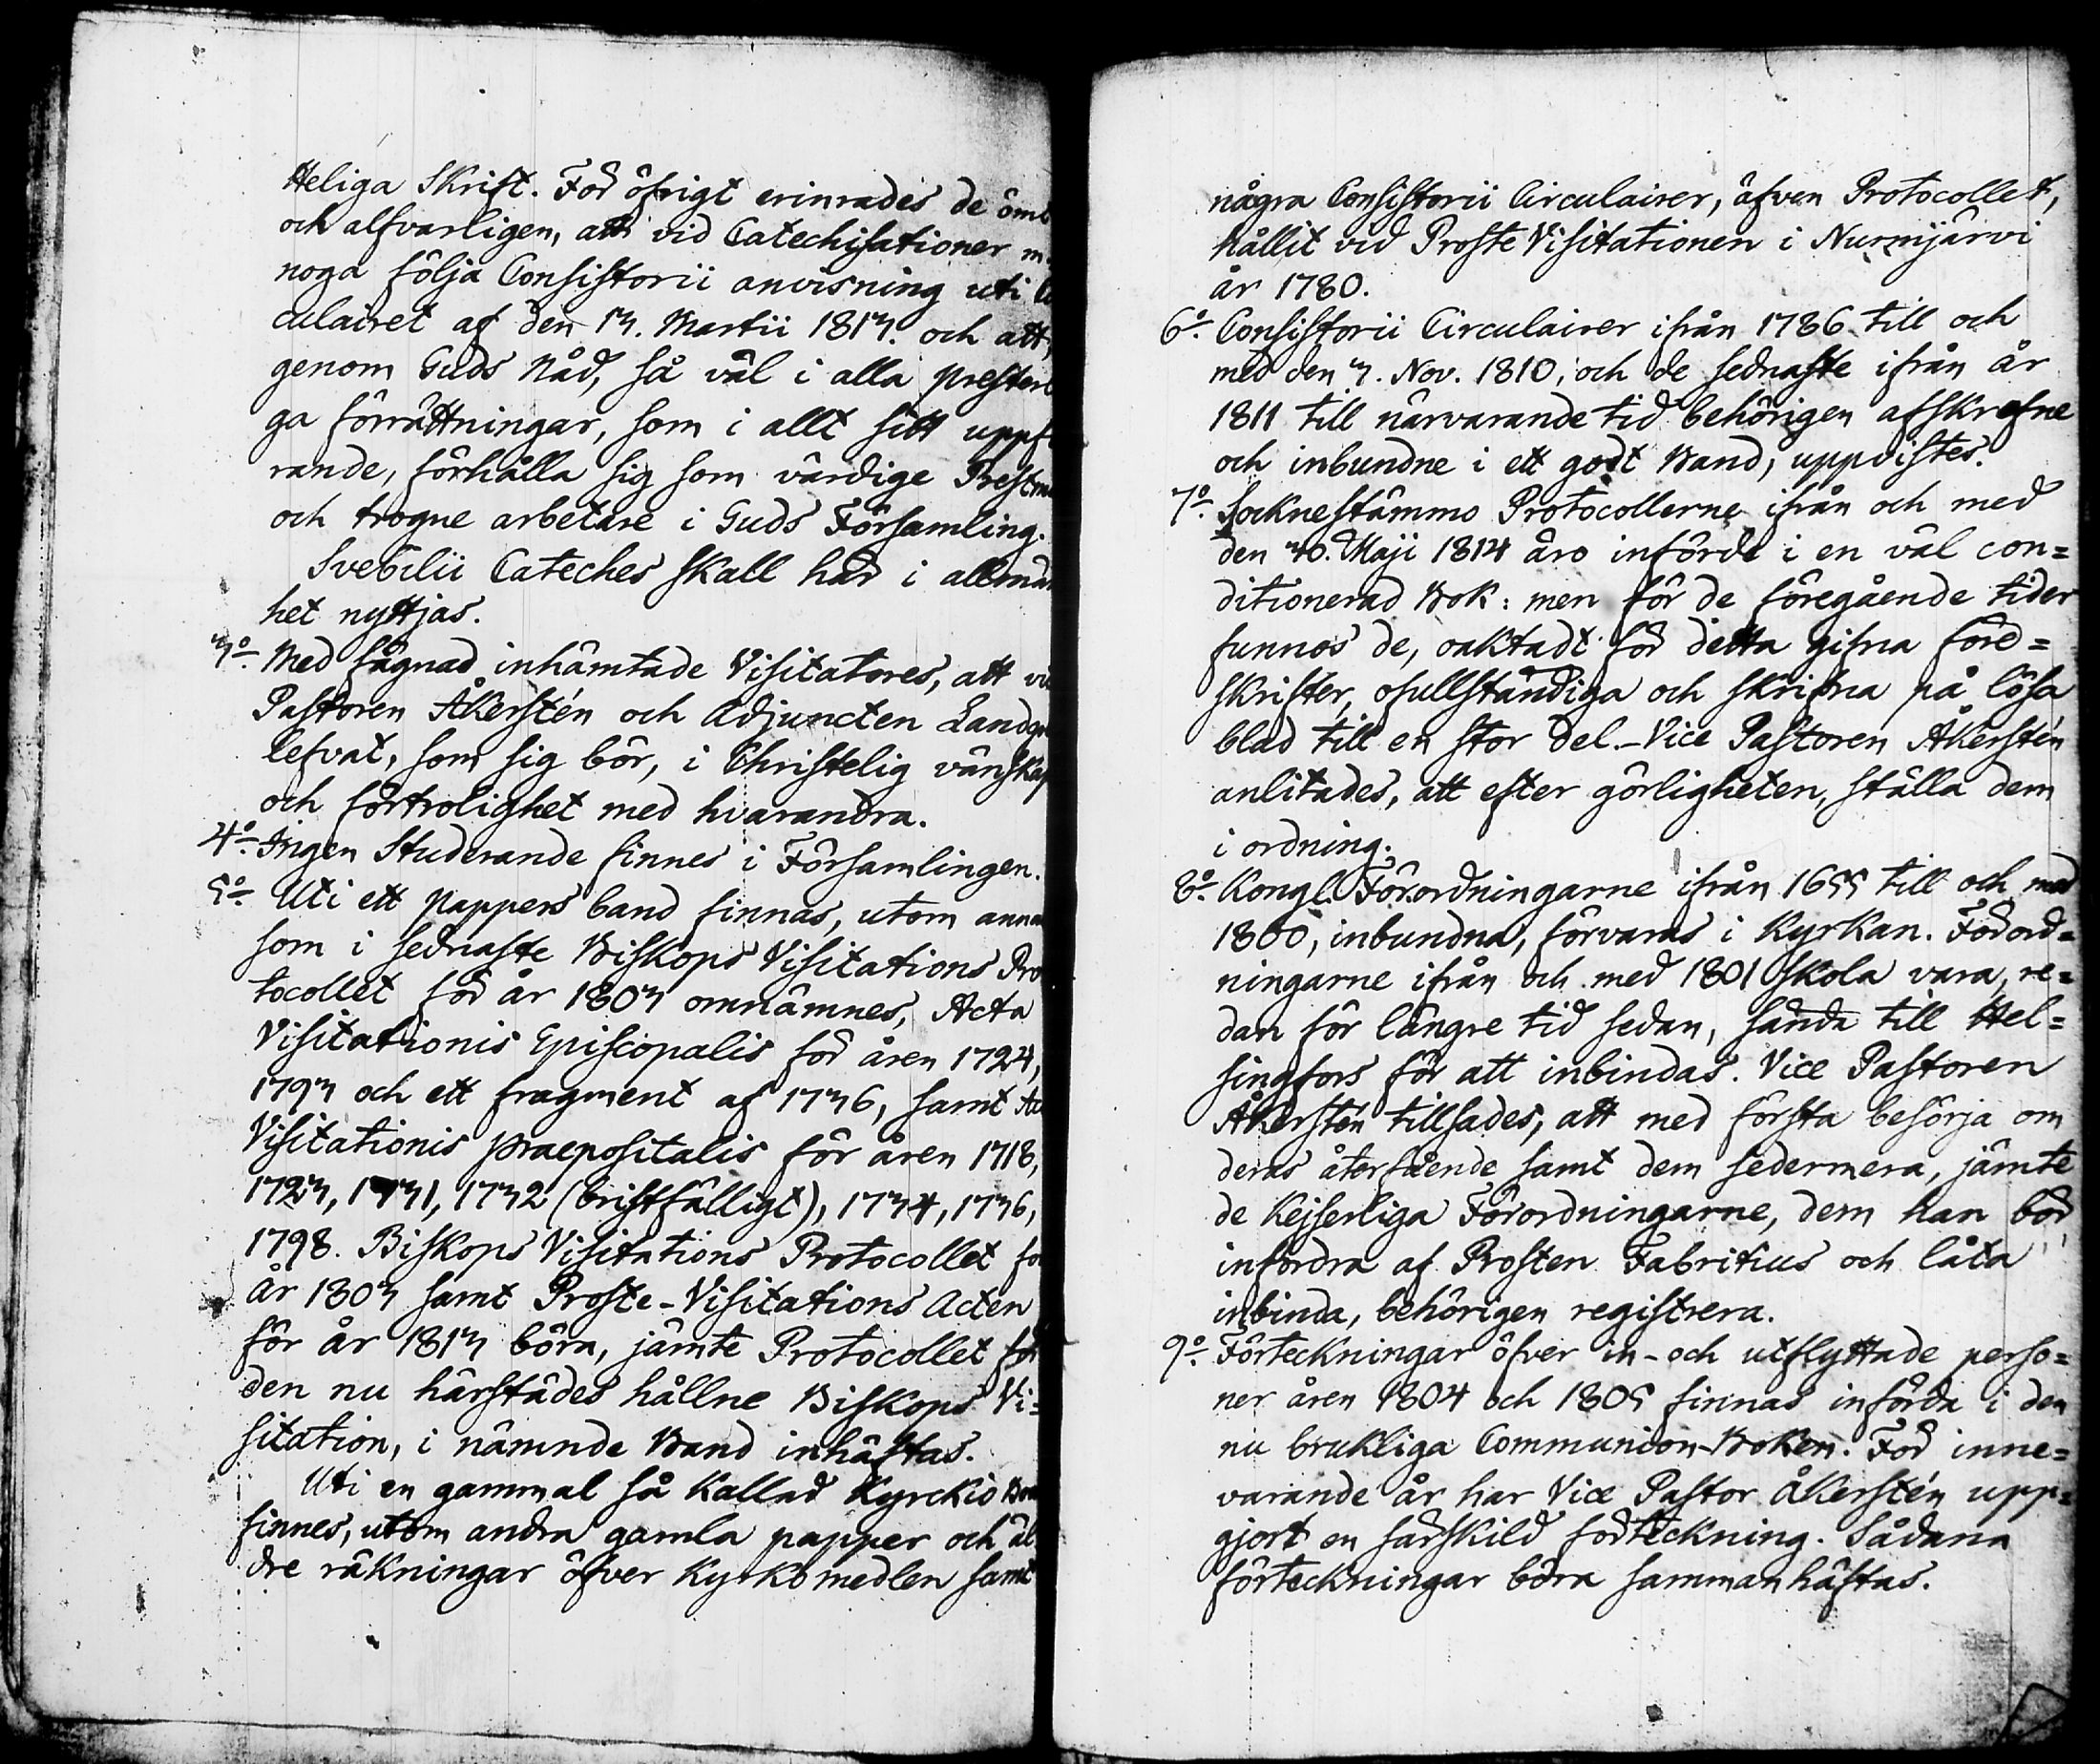 Heliga Skrift. För öfrigt erinrades de ömt
och alfvarligen, att vid Catechisationer
noga följa Consistorii anvisning uti
culairet af den 13. Martii 1813. och att,
genom Guds Nåd, så väl i alla presterl
ga förrättningar, som i allt sitt uppfö
rande, förhålla sig som värdige Prestmä
och trogne arbetare i Guds Församling.
Svebilii Cateches skall här i allmän
het nyttjas.
3º. Med fägnad inhämtade Visitatores, att vi
Pastoren Åkerstén och Adjuncten Landgr
lefvat, som sig bör, i Christelig vänskap
och förtrolighet med hvarandra.
4º. Ingen Studerande finnes i Församlingen.
5º. Uti ett pappers band finnas, utom annat
som i sednaste Biskops Visitations Pro
tocollet för år 1803 omnämnes, Acta
Visitationis Episcopalis för åren 1724,
1793 och ett fragment af 1736, samt Ac
Visitationis praepositalis för åren 1718,
1723, 1731, 1732 (bristfälligt), 1734, 1736,
1798. Biskops Visitations Protocollet för
År 1803 samt Proste-Visitations Acten
för år 1813 böra, jämte Protocollet för
den nu härstädes hållne Biskops Vi=
sitation, i nämnde Band inhäftas.
Uti en gammal så kallad Kyrckio Bok
finnes, utom andra gamla papper och äl
dre räkningar öfver Kyrkomedlen samt
några Consistorii Circulairer, äfven Protocollet,
hållit vid Proste Visitationen i Nurmijärvi
år 1780.
6º. Consistorii Circulairer ifrån 1786 till och
med den 3. Nov. 1810, och de sednaste ifrån år
1811 till närvarande tid behörigen afskrefne
och inbundne i ett godt Band, uppvistes.
7º. Socknestämmo Protocollerne ifrån och med
den 30. Maji 1814 äro införde i en väl con=
ditionerad Bok: men för de föregående tider
funnos de, oaktadt för detta gifna före=
skrifter, ofullständiga och skrifna på lösa
blad till en stor del. - Vice Pastoren Åkerstén
anlitades, att efter görligheten, ställa dem
i ordning.
8º. Kongl. Förordningarne ifrån 1655 till och med
1800, inbundna, förvaras i Kyrkan. Förord=
ningarne ifrån och med 1801 skola vara, re=
dan för längre tid sedan, sända till Hel=
singfors för att inbindas. Vice Pastoren
Åkerstén tillsades, att med första besörja om
deras återfående samt dem sedermera, jämte
de Kejserliga Förordningarne, dem han bör
infordra af Prosten Fabritius och låta
inbinda, behörigen registrera.
9º. Förteckningar öfver in- och utflyttade perso=
ner åren 1804 och 1805 finnas införda i den
nu brukliga Communion-Boken. För inne=
varande år har Vice Pastor Åkerstén upp=
gjort en särskild förteckning. Sådana
förteckningar böra sammanhäftas.